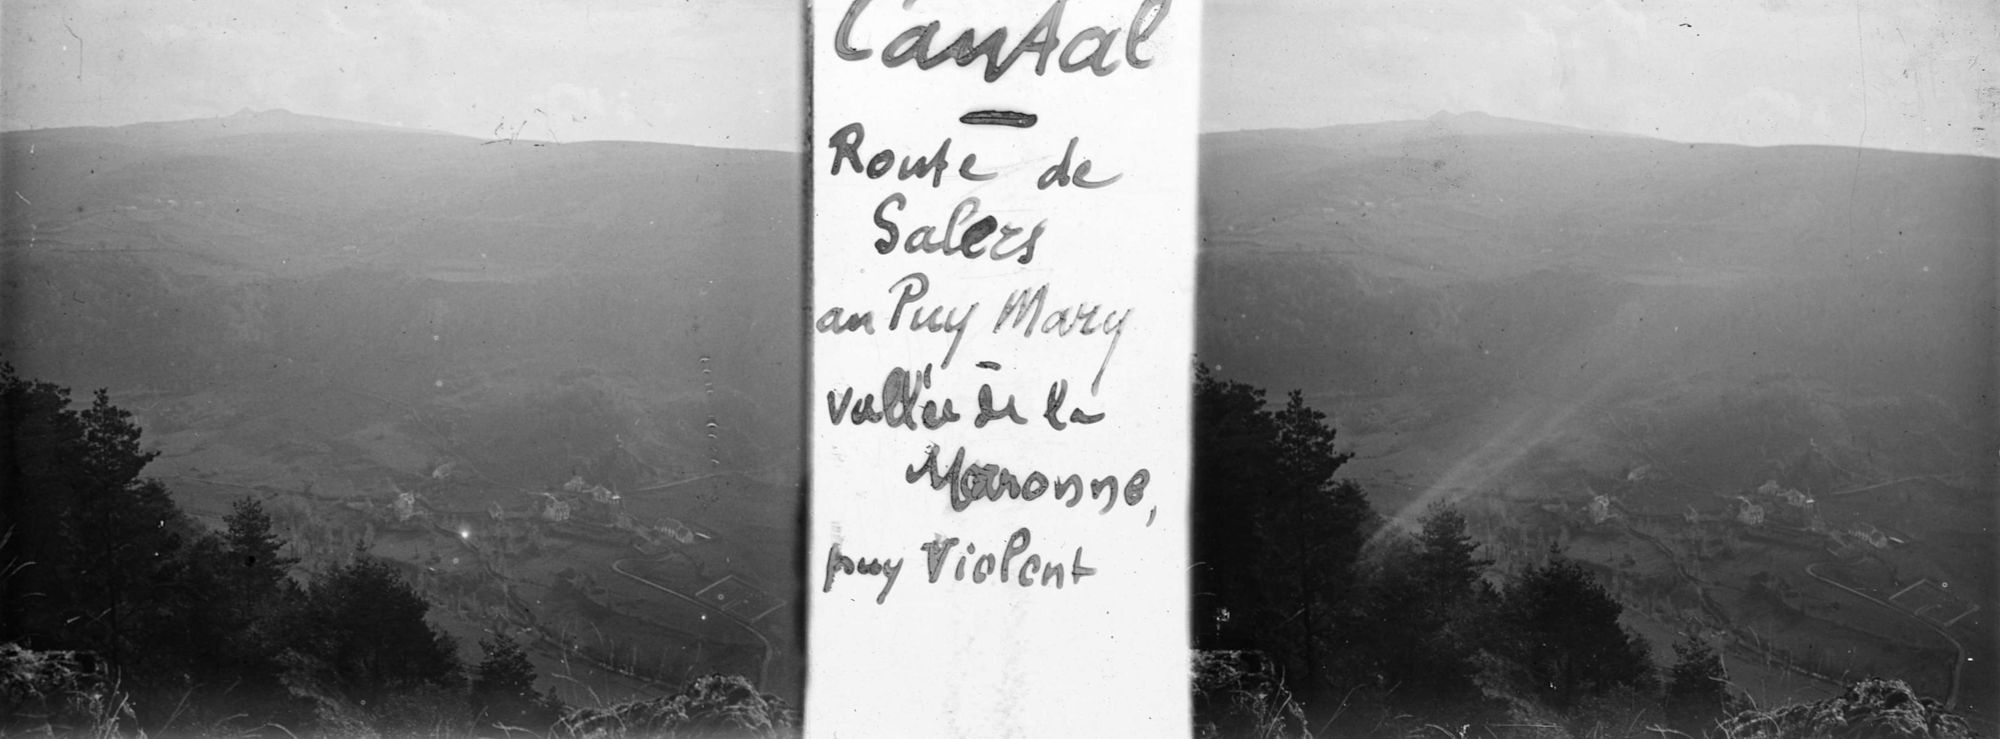 Cantal
Route de
Salers
au Puy Mary
vallée de la
Maronne,
puy Violent